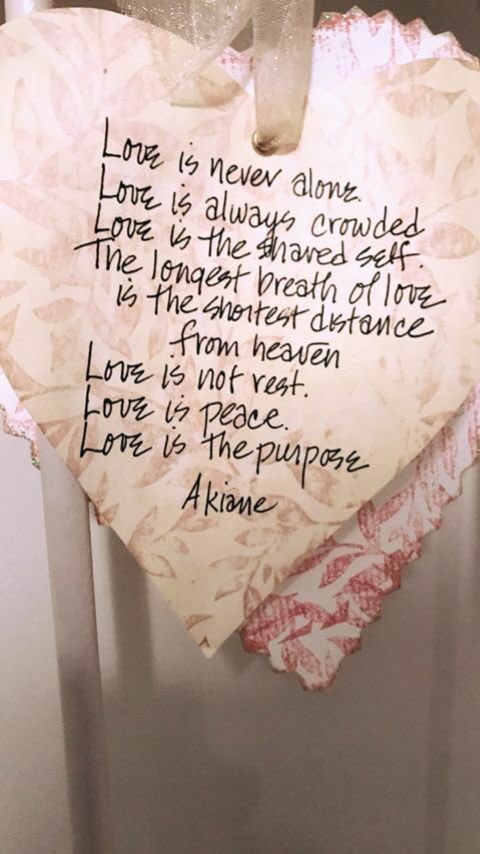 Love is never alone.
Love is always crowded
Love is the shared self.
The longest breath of love
is the shortest distance
from heaven
Love is not rest.
Love is peace.
Love is the purpose
Akiane